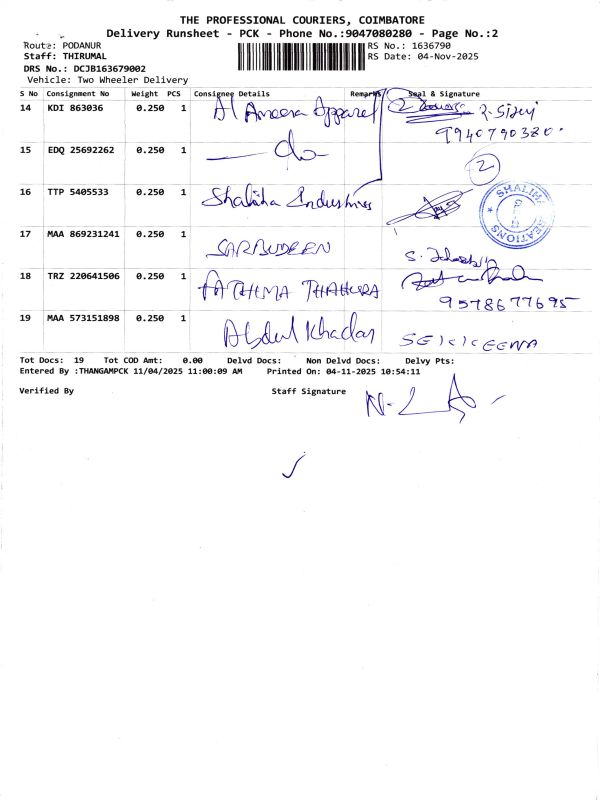 THE PROFESSIONAL COURIERS, COIMBATORE
Delivery Runsheet - PCK - Phone No.:9047080280 - Page No.:2
Route: PODANUR RS No.: 1636790
Staff: THIRUMAL RS Date: 04-Nov-2025
DRS No.: DCJB163679002
Vehicle: Two Wheeler Delivery
S No Consignment No Weight PCS Consignee Details Remarks Seal & Signature
14 KDI 863036 0.250 1 Al Ameera Apparel
9940790380.
15 EDQ 25692262 0.250 1 — do — 2
16 TTP 5405533 0.250 1 Shaliha Industries
17 MAA 869231241 0.250 1 SARBUDEEN S.
18 TRZ 220641506 0.250 1 FATHIMA THAHURA
9578677695
19 MAA 573151898 0.250 1 Abdul Khadar
Tot Docs: 19 Tot COD Amt: 0.00 Delvd Docs: Non Delvd Docs: Delvy Pts:
Entered By :THANGAMPCK 11/04/2025 11:00:09 AM Printed On: 04-11-2025 10:54:11
Verified By Staff Signature